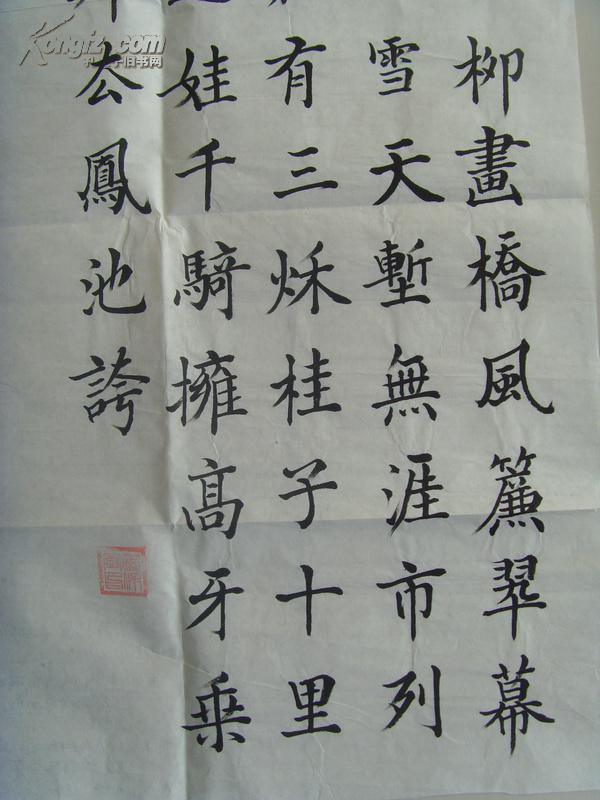 柳畫橋風簾翠幕
雪天塹無涯市列
有三秌桂子十里
娃千騎擁高牙乗
去鳳池誇
Kongfz.com
孔夫子旧书网